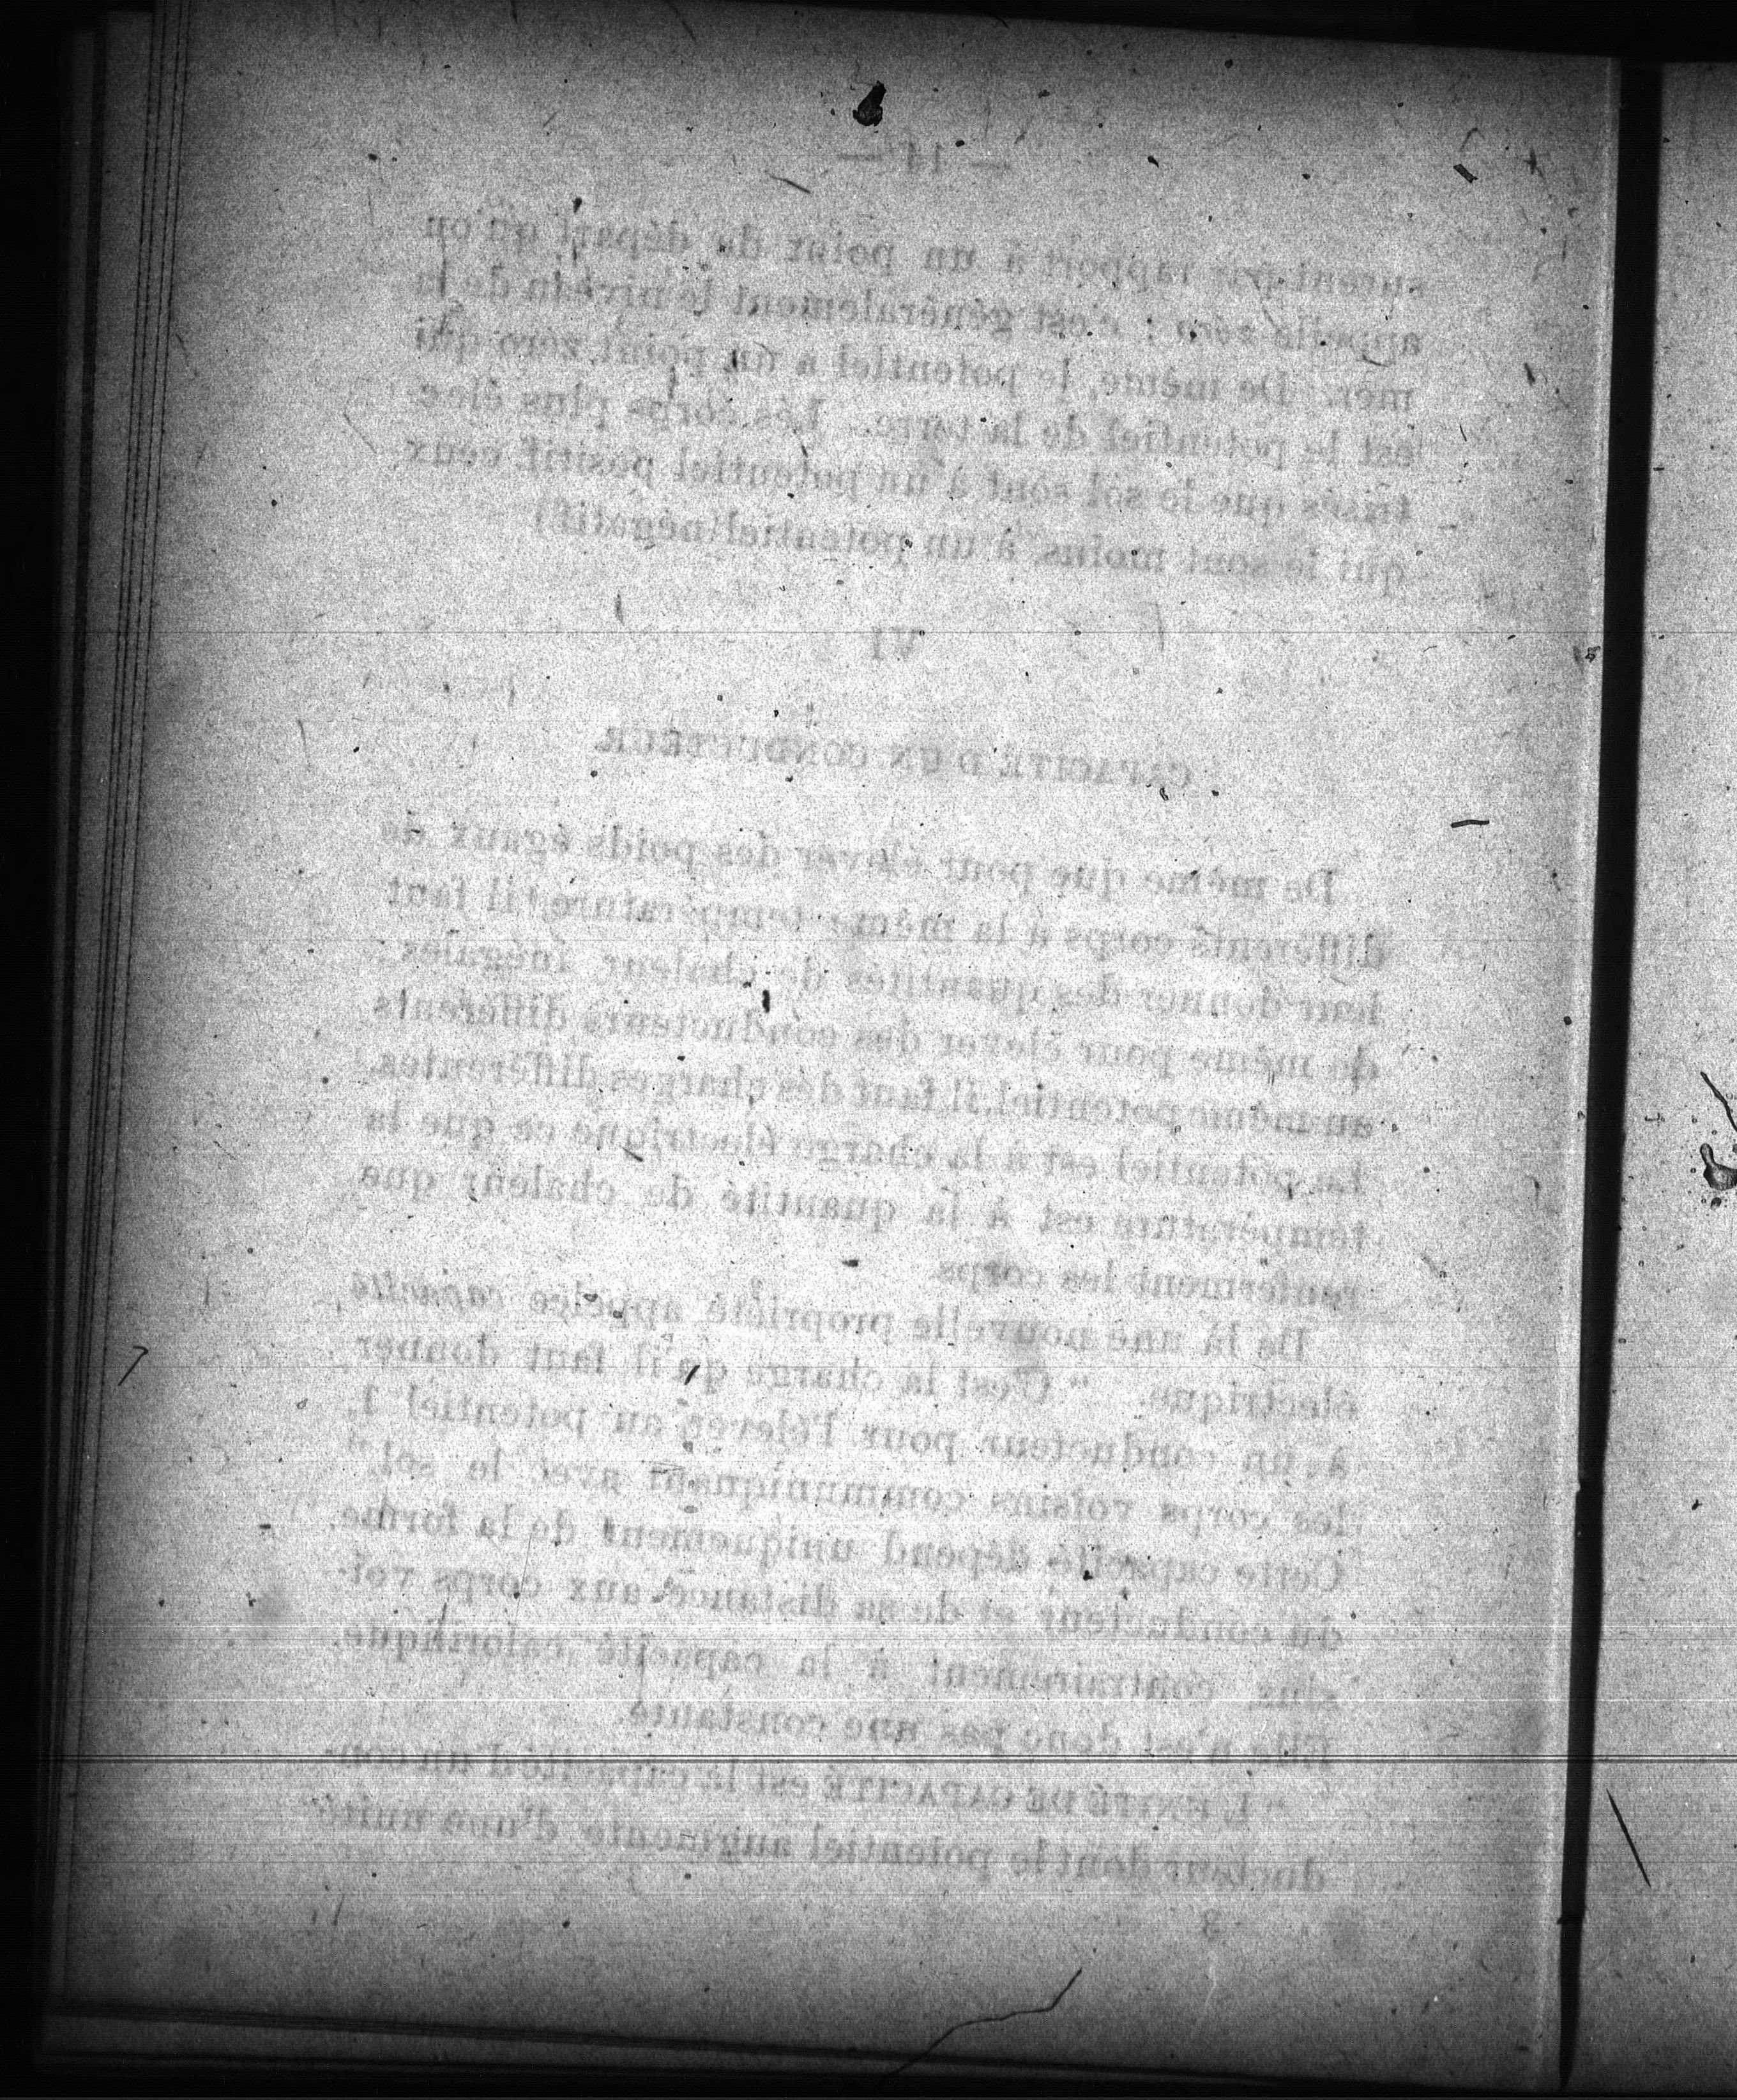 — 14 —
surent par rapport à un point du départ qu'on
appelle zéro ; c'est généralement le niveau de la
mer. De même, le potentiel a un point zéro qui
est le potentiel de la terre. Les corps plus élec-
trisés que le sol sont à un potentiel positif, ceux
qui le sont moins, à un potentiel négatif)
VI
CAPACITÉ D'UN CONDUCTEUR.
De même que pour élever des poids égaux de
différents corps à la même température, il faut
leur donner des quantités de chaleur inégales ;
de même pour élever des conducteurs différents
au même potentiel, il faut des charges différentes.
Le potentiel est à la charge électrique ce que la
température est à la quantité de chaleur que
renferment les corps.
De là une nouvelle propriété appelée capacité
électrique. " C'est la charge qu'il faut donner
à un conducteur pour l'élever au potentiel 1,
les corps voisins communiquant avec le sol."
Cette capacité dépend uniquement de la forme
du conducteur et de sa distance aux corps voi-
sins, contrairement à la capacité calorifique.
Elle n'est donc pas une constante.
" L'UNITÉ DE CAPACITÉ est la capacité d'un con-
ducteur dont le potentiel augmente d'une unité
3